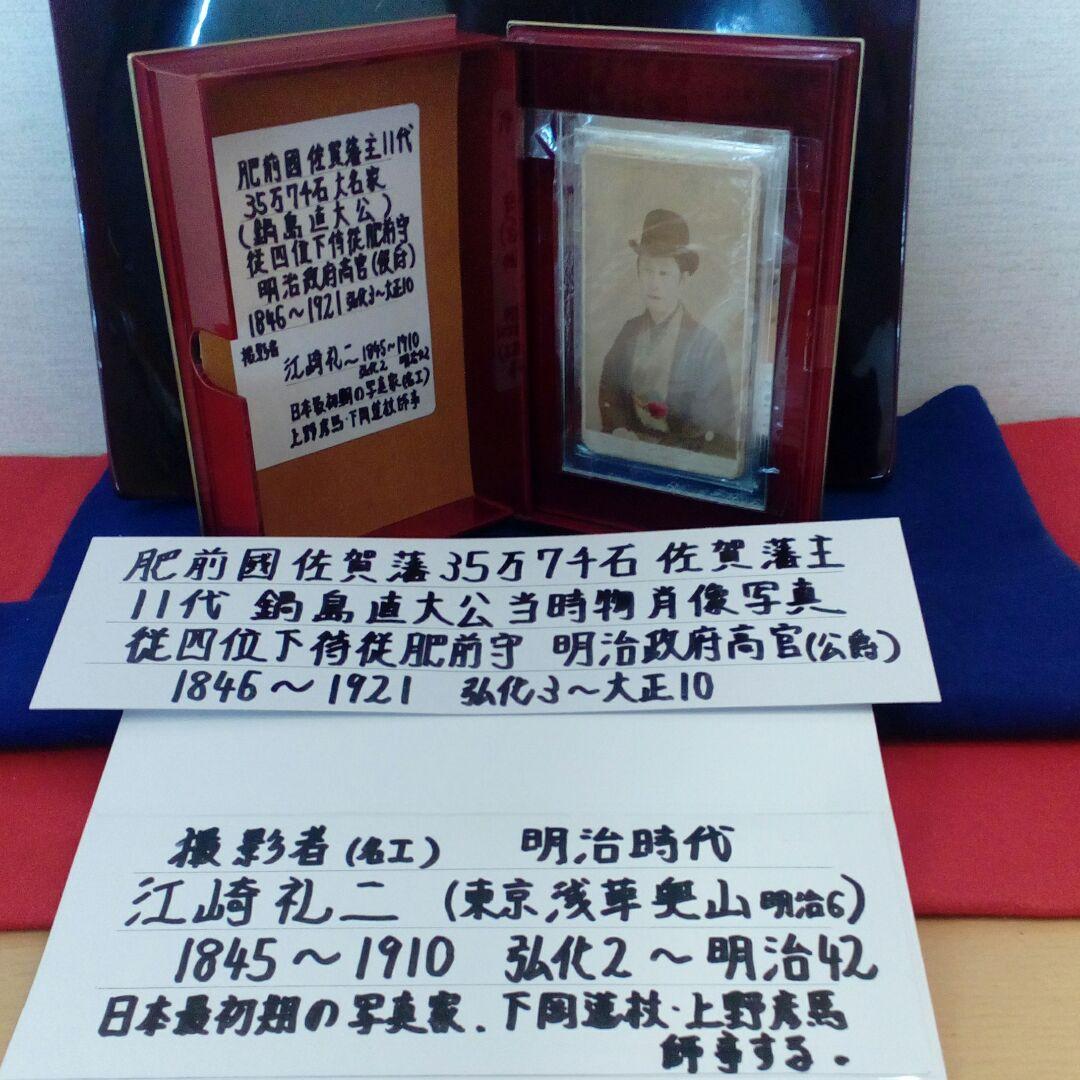 肥前國佐賀藩主11代
35万7千石大名家
(鍋島直大公)
従四位下侍従肥前守
明治政府高官(侯爵)
1846～1921 弘化3～大正10
撮影者
江崎礼二 1845～1910
弘化2 明治42
日本最初期の写真家(名工)
上野彦馬・下岡蓮杖師事
肥前國佐賀藩35万7千石 佐賀藩主
11代 鍋島直大公当時物肖像写真
従四位下侍従肥前守 明治政府高官(公爵)
1846～1921 弘化3～大正10
撮影者(名工) 明治時代
江崎礼二 (東京浅草奥山明治6)
1845～1910 弘化2～明治42
日本最初期の写真家.下岡蓮杖・上野彦馬
師事する.